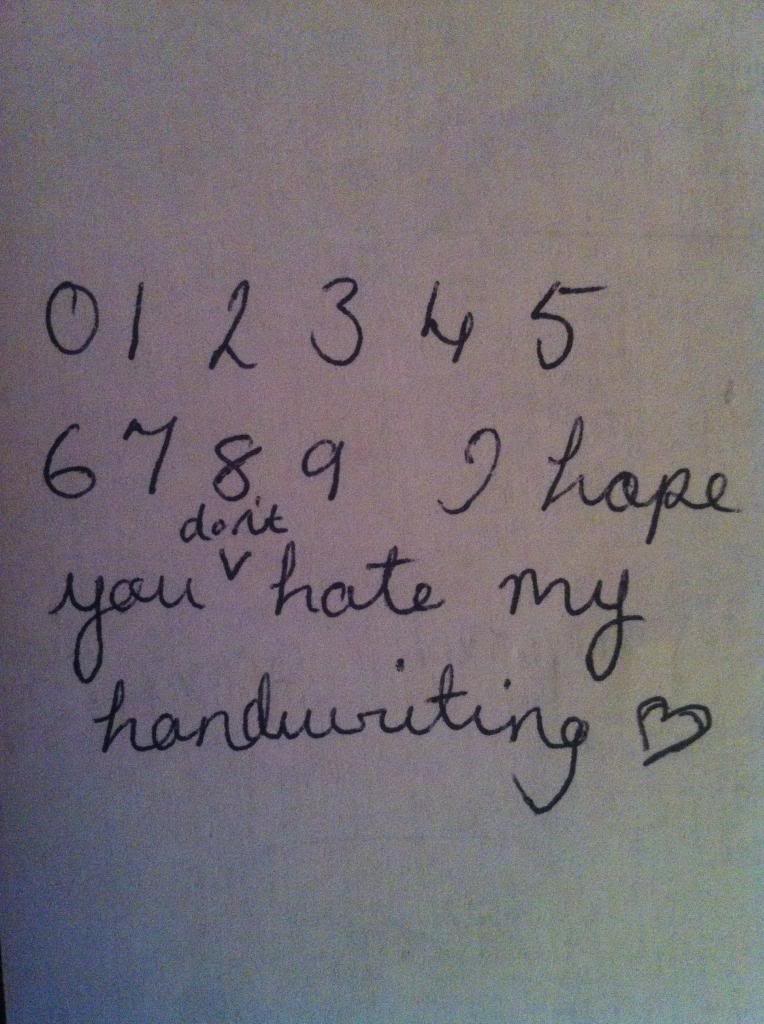 0 1 2 3 4 5
6 7 8 9 I hope
don't
you ^ hate my
handwriting ♡